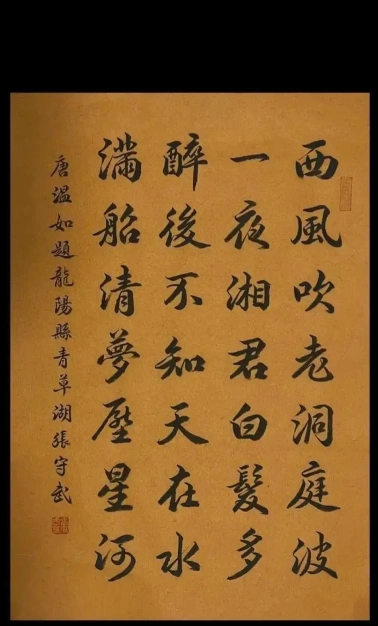 西風吹老洞庭波
一夜湘君白髮多
醉後不知天在水
滿船清夢壓星河
唐溫如題龍陽縣青草湖張守武